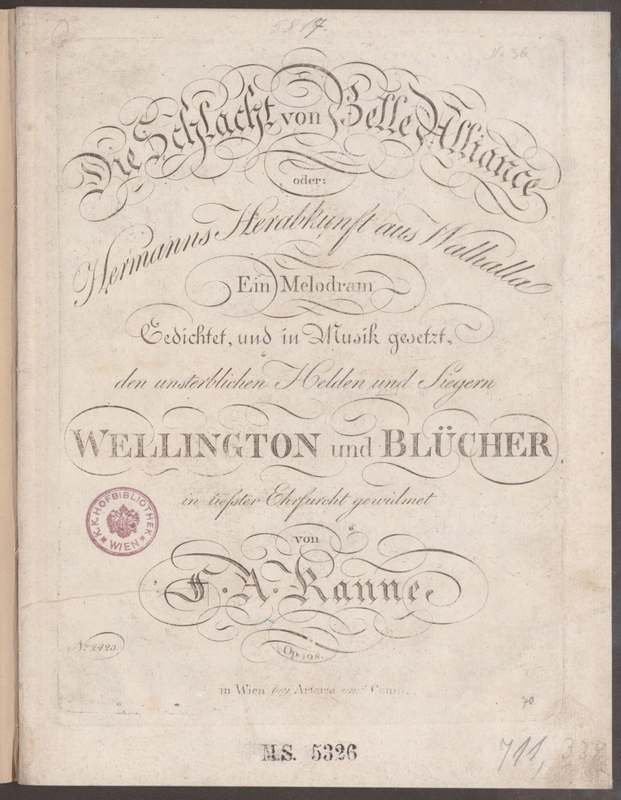 5817.
No 36
Die Schlacht von Belle Alliance
oder:
Hermanns Herabkunft aus Walhalla
Ein Melodram
Gedichtet, und in Musik gesetzt,
den unsterblichen Helden und Siegern
WELLINGTON und BLÜCHER
in tiefster Ehrfurcht gewidmet
K.K. HOFBIBLIOTHEK
WIEN
von
F. A. Kanne.
No 2425.
Op 108.
in Wien bey Artaria und Comp.
70
M.S. 5326
711,